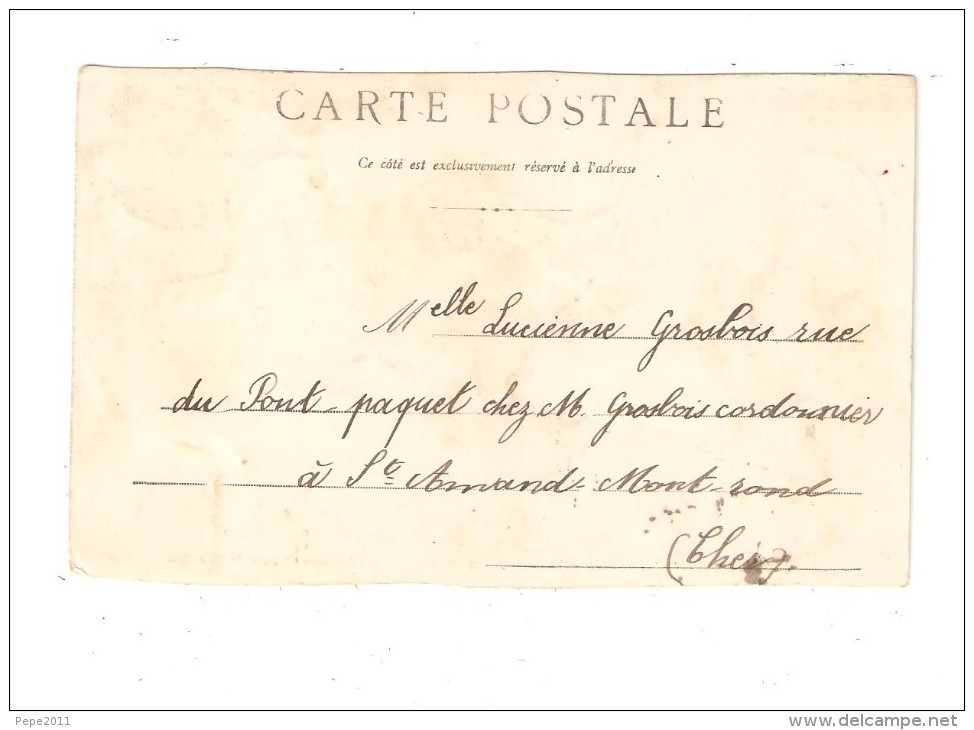 CARTE POSTALE
Ce côté est exclusivement réservé à l'adresse
Melle Lucienne Grosbois rue
du Pont-paquet chez M. Grosbois cordonnier
à St Amand-Mont-rond
(Cher).
Pepe2011
www.delcampe.net